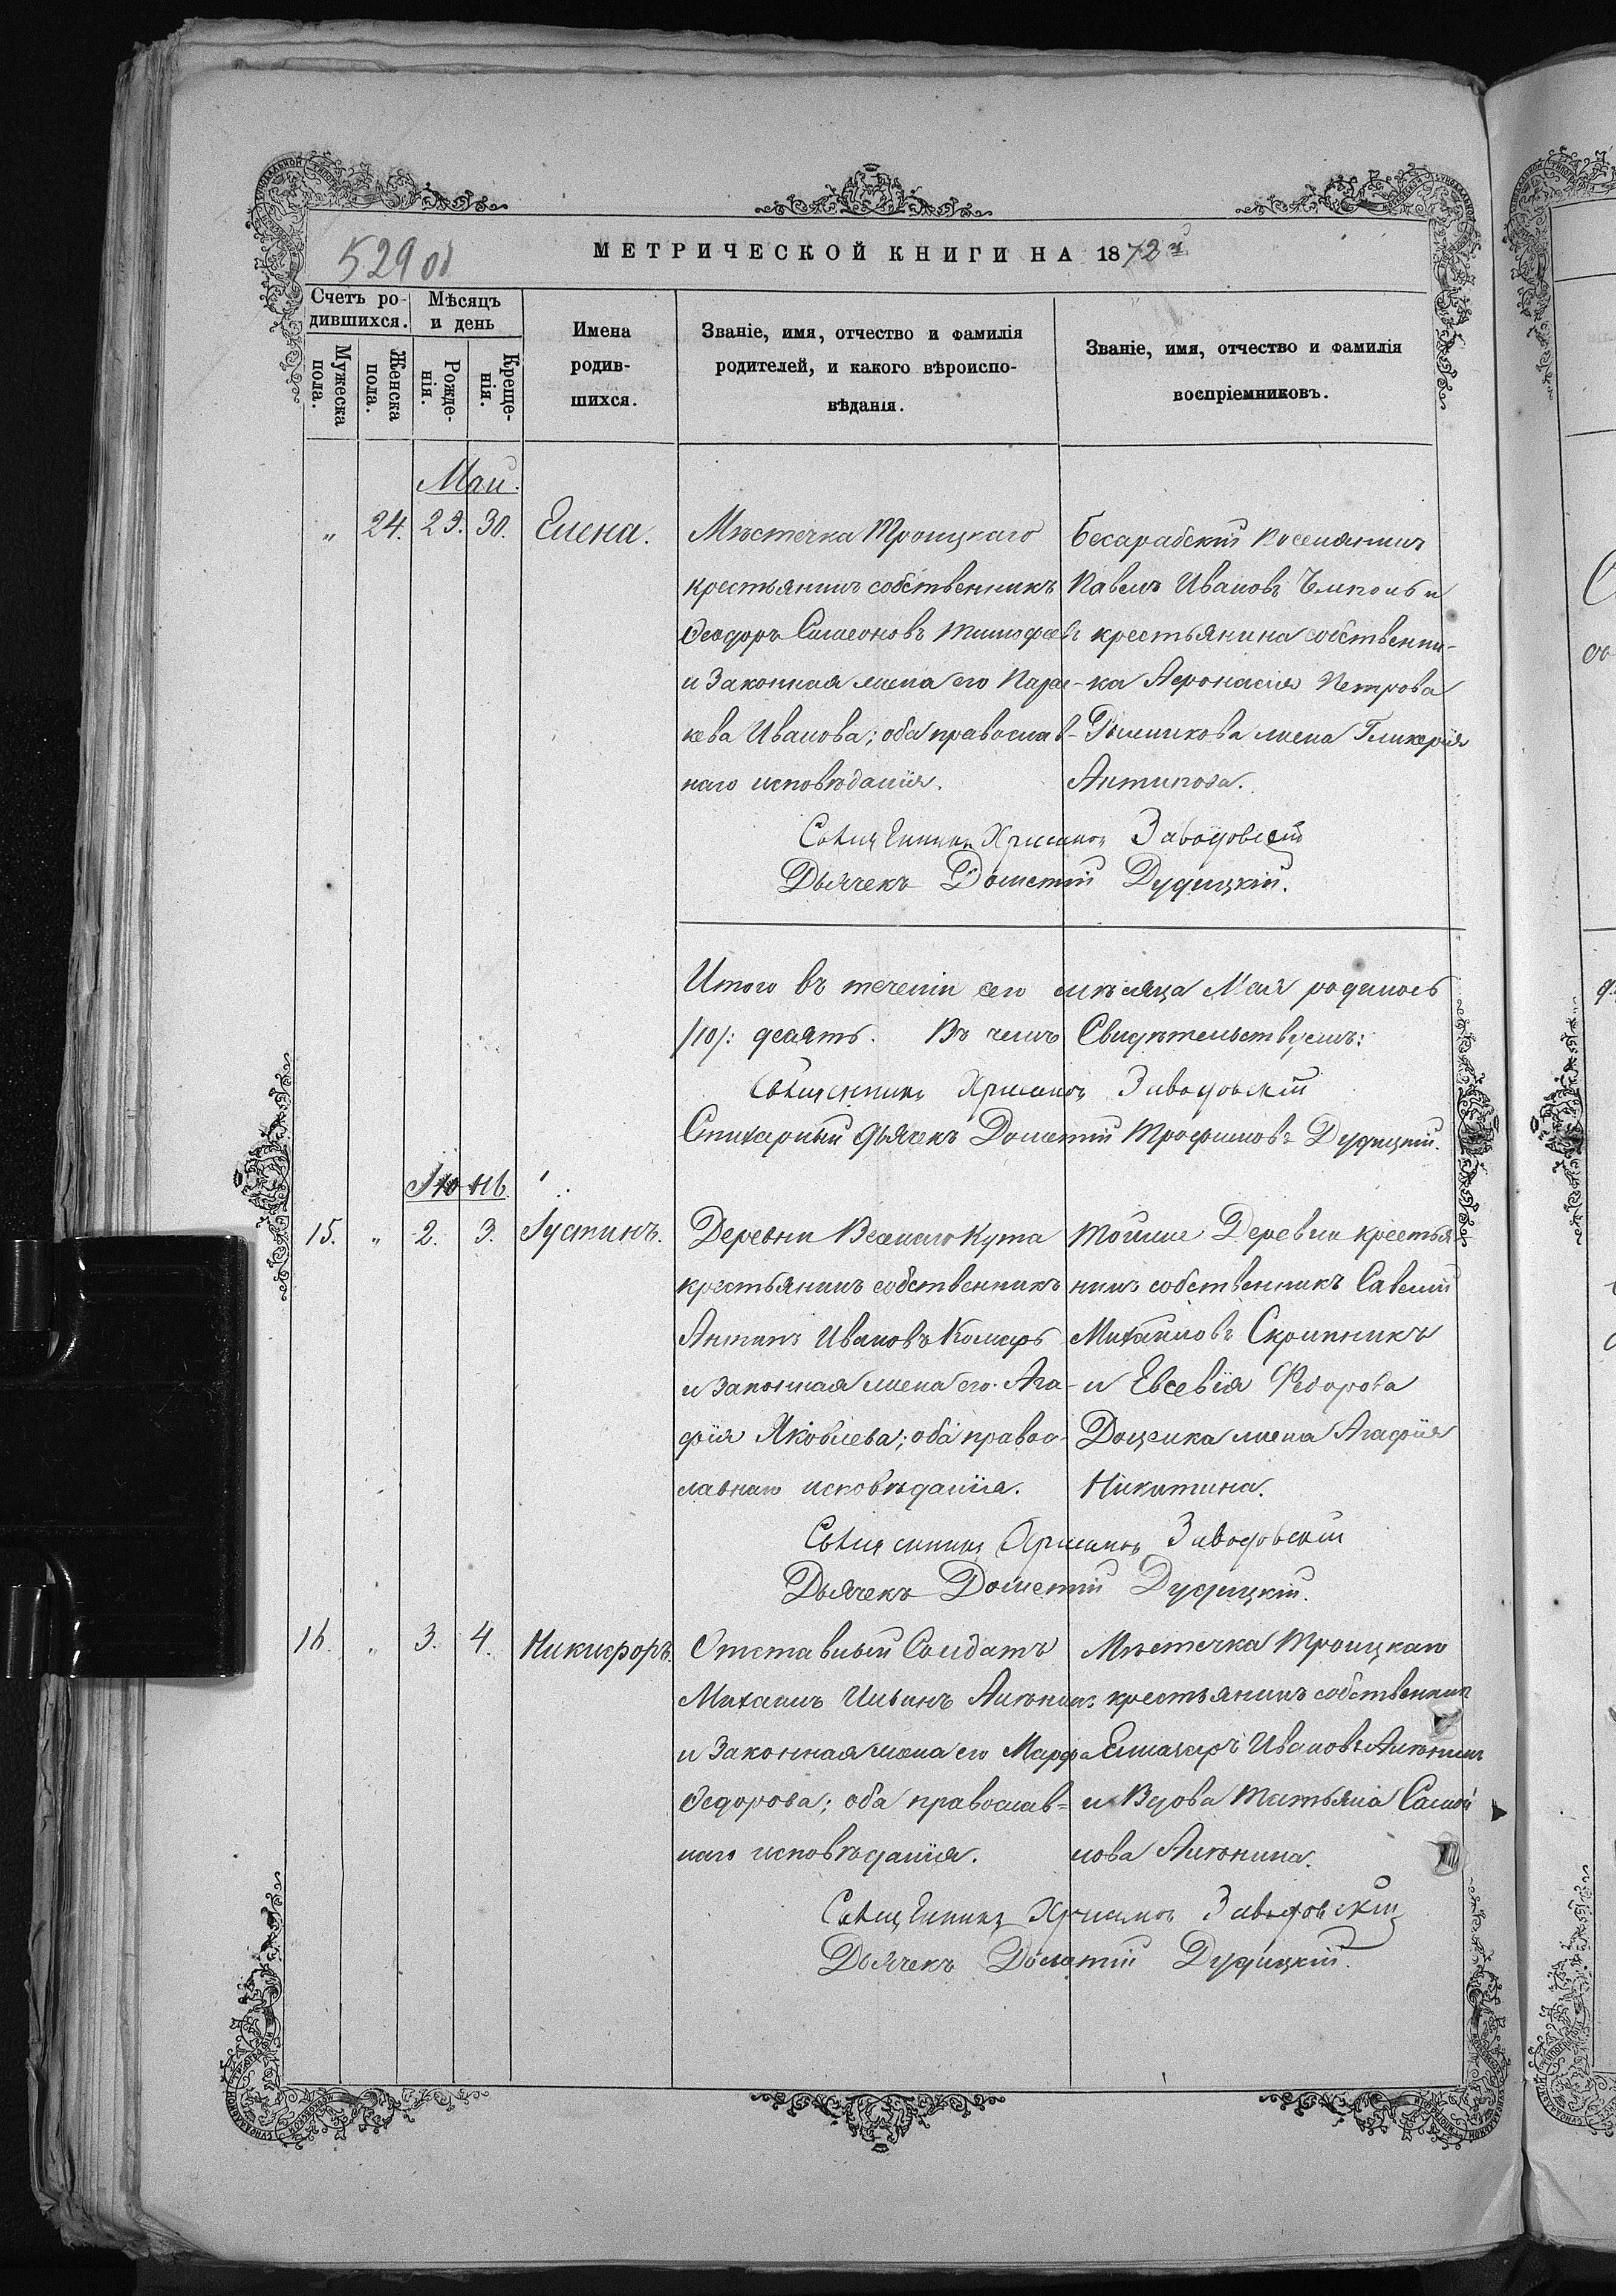 529 об
МЕТРИЧЕСКОЙ КНИГИ НА 1872й
Счетъ ро-
дившихся.
Мѣсяцъ
и день
Мужеска
пола.
Женска
пола.
Рожде-
нія.
Креще-
нія.
Имена
родив-
шихся.
Званіе, имя, отчество и фамилія
родителей, и какого вѣроиспо-
вѣданія.
Званіе, имя, отчество и фамилія
воспріемниковъ.
Май.
„ 24. 29. 30. Елена.
Мѣстечка Троицкаго
крестьянинъ собственникъ
Ѳеодоръ Симеоновъ Тимофеевъ
и законная жена его Парас-
кева Иванова; оба православ-
наго исповѣданія.
Бесарабскій Поселянинъ
Павелъ Ивановъ и
крестьянина собственни-
ка Афонасія Петрова
жена Гликерія
Антипова.
Священникъ Хрисанфъ Заводовскій
Дьячекъ Дометій Дудицкій.
Итого въ теченіи сего мѣсяца Мая родилось
/10/: десять. Въ чемъ Свидѣтельствуемъ:
Священникъ Хрисанфъ Заводовскій
Стихарный Дьячекъ Дометій Трофимовъ Дудицкій.
Іюнь.
15. „ 2. 3. Іустинъ.
Деревни Веселаго Кута
крестьянинъ собственникъ
Антипъ Ивановъ Комаръ
и законная жена его Ага-
фія Яковлева; оба правос-
лавнаго исповѣданія.
Тойже Деревни крестья-
нинъ собственникъ Савелій
Михайловъ Скрипникъ
и Евсевія Федорова
Доценка жена Агафія
Никитина.
Священникъ Хрисанфъ Заводовскій
Дьячекъ Дометій Дудицкій.
16. „ 3. 4. Никифоръ.
Отставный Солдатъ
Михаилъ Ильинъ Анюнинъ
и законная жена его Марфа
Ѳедорова; оба православ=
наго исповѣданія.
Мѣстечка Троицкаго
крестьянинъ собственникъ
Елиазаръ Ивановъ Анюнинъ
и Вдова Татьяна Самой
лова Анюнина.
Священникъ Хрисанфъ Заводовскій
Дьячекъ Дометій Дудицкій.